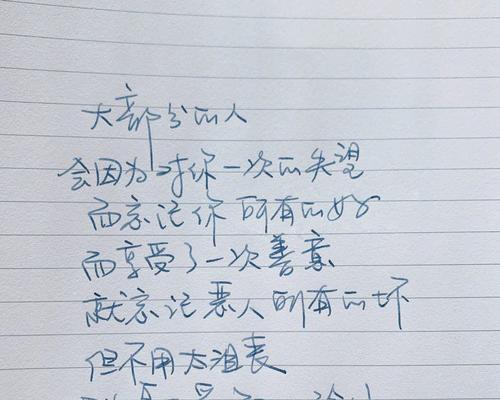 大部分的人
会因为对你一次的失望
而忘记你所有的好
而享受了一次善意
就忘记恶人所有的坏
但不用太沮丧